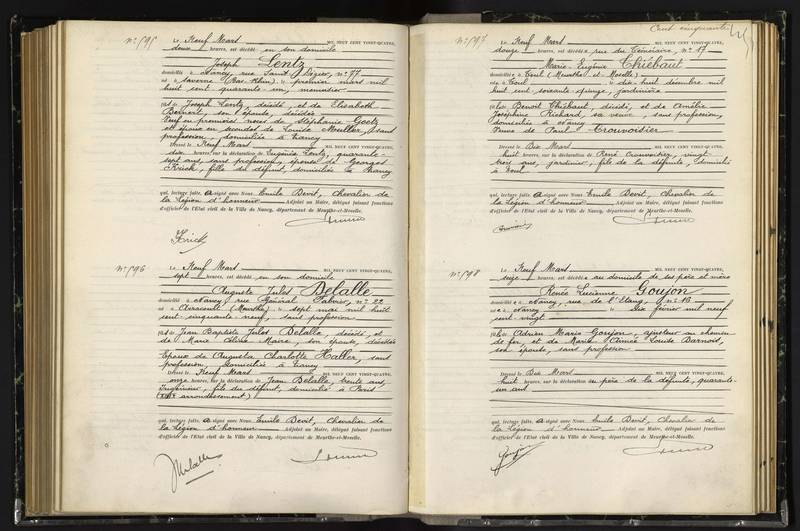 N° 595
Le Neuf Mars MIL NEUF CENT VINGT-QUATRE,
deux heures, est décédé en son domicile
Joseph Lentz
domicilié à Nancy, rue Saint Dizier, n° 77
né à Saverne (Bas-Rhin), le premier mars mil
huit cent quarante-un, menuisier
fils de Joseph Lentz, décédé, et de Elisabeth
son épouse, décédée
Veuf en premières noces de Stéphanie Goetz
et époux en secondes de Louise Muller, sans
profession, domiciliée à Nancy
Dressé le Neuf Mars MIL NEUF CENT VINGT-QUATRE,
dix heures, sur la déclaration de Eugénie Lentz, quarante-
sept ans, sans profession, épouse de Georges
Krick, fille du défunt, domiciliée à Nancy
qui, lecture faite, a signé avec Nous Emile Devit, Chevalier de
la Légion d'honneur Adjoint au Maire, délégué faisant fonctions
d'officier de l'Etat civil de la Ville de Nancy, département de Meurthe-et-Moselle.
Krick
N° 596
Le Neuf Mars MIL NEUF CENT VINGT-QUATRE,
sept heures, est décédé en son domicile
Auguste Jules Delalle
domicilié à Nancy rue Général Fabvier, n° 22
né à Avracourt (Meurthe) le sept mai mil huit
cent cinquante-neuf, sans profession
fils de Jean Baptiste Jules Delalle, décédé, et
de Marie Maire, son épouse, décédée
Epoux de Augusta Charlotte Haller, sans
profession, domiciliée à Nancy
Dressé le Neuf Mars MIL NEUF CENT VINGT-QUATRE,
onze heures, sur la déclaration de Jean Delalle, trente ans,
Ingénieur, fils du défunt, domicilié à Paris
arrondissement)
qui, lecture faite, a signé avec Nous Emile Devit, Chevalier de
la Légion d'honneur Adjoint au Maire, délégué faisant fonctions
d'officier de l'Etat civil de la Ville de Nancy, département de Meurthe-et-Moselle.
JDelalle
Cent cinquante
N° 597
Le Neuf Mars MIL NEUF CENT VINGT-QUATRE,
douze heures, est décédée rue du Vénéraire, n° 17
Marie-Eugénie Thiébaut
domiciliée à Toul (Meurthe-et-Moselle)
née à Toul le dix-huit décembre mil
huit cent soixante-quinze, jardinière
fille de Benoit Thiébaut, décédé, et de Amélie
Joséphine Richard, sa veuve, sans profession,
domiciliée à Nancy
Veuve de Paul Crouvoisier
Dressé le Dix Mars MIL NEUF CENT VINGT-QUATRE,
huit heures, sur la déclaration de René Crouvoisier, vingt-
trois ans, jardinier, fils de la défunte, domicilié
à Toul
qui, lecture faite, a signé avec Nous Emile Devit, Chevalier de
la Légion d'honneur Adjoint au Maire, délégué faisant fonctions
d'officier de l'Etat civil de la Ville de Nancy, département de Meurthe-et-Moselle.
N° 598
Le Neuf Mars MIL NEUF CENT VINGT-QUATRE,
seize heures, est décédée au domicile de ses père et mère
Renée Lucienne Goujon
domiciliée à Nancy, rue de l'Etang, n° 16
née à Nancy le dix février mil neuf
cent vingt
fille de Adrien Marie Goujon, ajusteur au chemin
de fer, et de Marie Aimée Louise Barnois,
son épouse, sans profession
Dressé le Dix Mars MIL NEUF CENT VINGT-QUATRE,
huit heures, sur la déclaration du père de la défunte, quarante-
un ans
qui, lecture faite, a signé avec Nous Emile Devit, Chevalier de
la Légion d'honneur Adjoint au Maire, délégué faisant fonctions
d'officier de l'Etat civil de la Ville de Nancy, département de Meurthe-et-Moselle.
Goujon